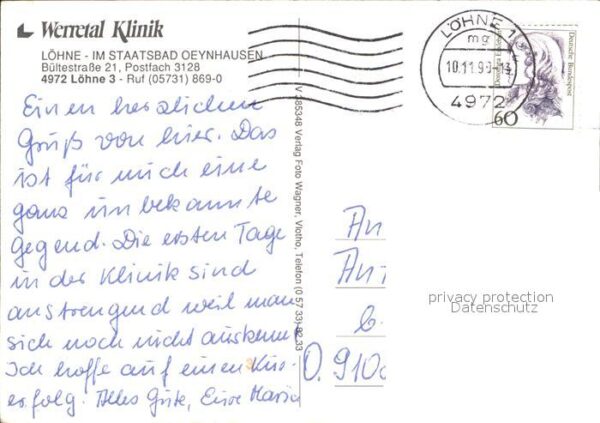 Werretal Klinik
LÖHNE - IM STAATSBAD OEYNHAUSEN
Bültestraße 21, Postfach 3128
4972 Löhne 3 - Ruf (05731) 869-0
Einen herzlichen
Gruß von hier. Das
ist für mich eine
ganz unbekannte
Gegend. Die ersten Tage
in der Klinik sind
anstrengend weil man
sich noch nicht auskennt
Ich hoffe auf einen Kur-
erfolg. Alles Gute, Eure Maria
V 385348 Verlag Foto Wagner, Vlotho, Telefon (0 57 33) 22 33
LÖHNE 1
mg
10.11.90-13
4972
Deutsche Bundespost
60
An
An
b.
O. 910
privacy protection
Datenschutz